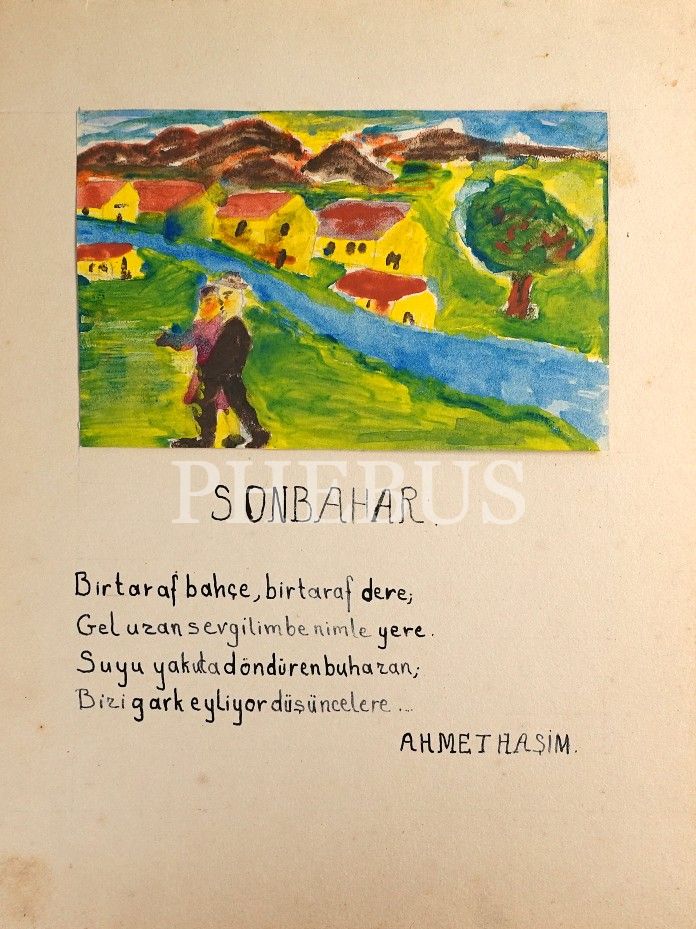 PHEBUS
SONBAHAR.
Bir taraf bahçe, bir taraf dere;
Gel uzan sevgilim benimle yere.
Suyu yakuta döndüren bu hazan;
Bizi gark eyliyor düşüncelere...
AHMET HAŞİM.